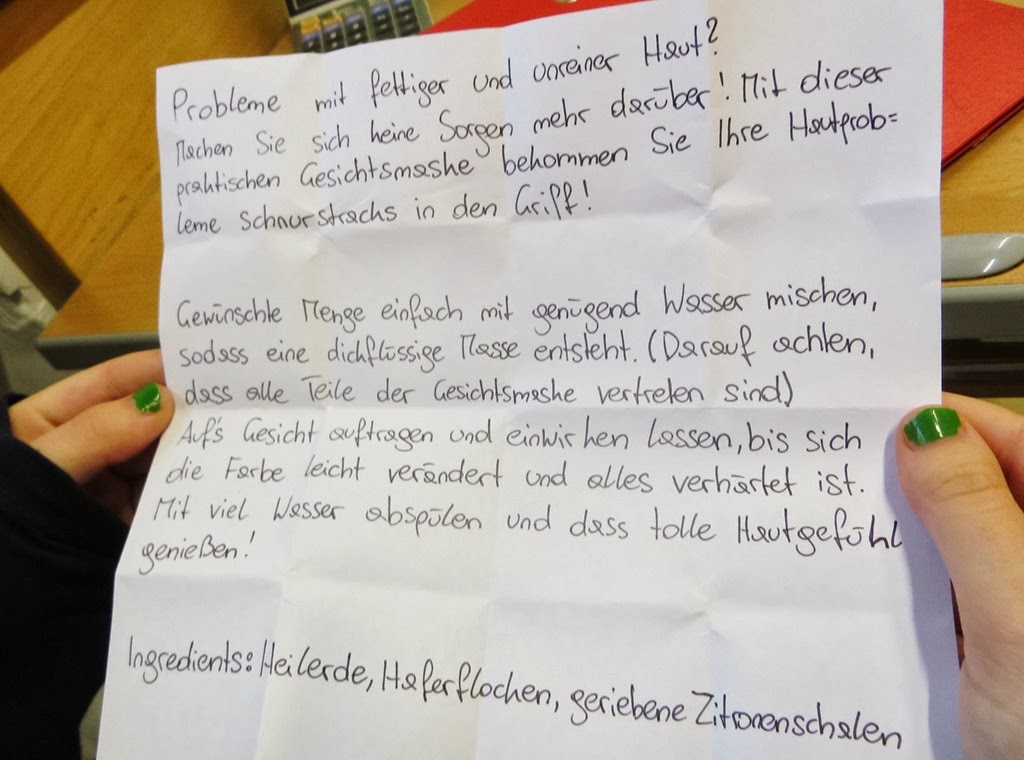 Probleme mit fettiger und unreiner Haut?
Machen Sie sich keine Sorgen mehr darüber! Mit dieser
praktischen Gesichtsmaske bekommen Sie Ihre Hautprob=
leme schnurstracks in den Griff!
Gewünschte Menge einfach mit genügend Wasser mischen,
sodass eine dickflüssige Masse entsteht. (Darauf achten,
dass alle Teile der Gesichtsmaske vertreten sind)
Auf's Gesicht auftragen und einwirken lassen, bis sich
die Farbe leicht verändert und alles verhärtet ist.
Mit viel Wasser abspülen und dass tolle Hautgefühl
genießen!
Ingredients: Heilerde, Haferflocken, geriebene Zitronenschalen